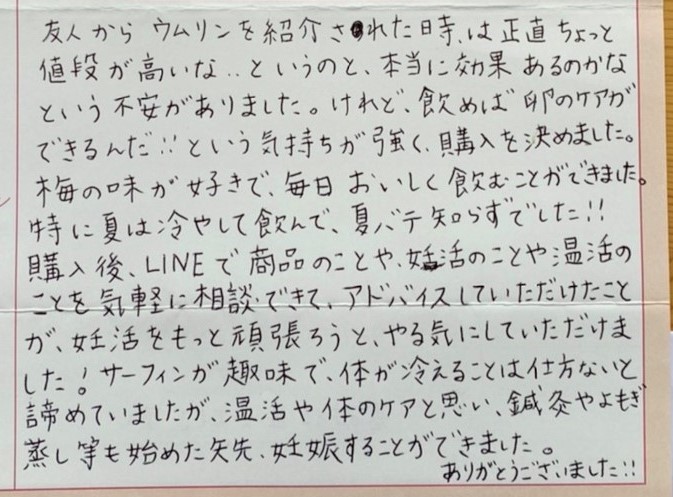 友人から ウムリンを紹介された時、は正直ちょっと
値段が高いな‥というのと、本当に効果あるのかな
という不安がありました。けれど、飲めば卵のケアが
できるんだ!!という気持ちが強く、購入を決めました。
梅の味が好きで、毎日おいしく飲むことができました。
特に夏は冷やして飲んで、夏バテ知らずでした!!
購入後、LINEで商品のことや、妊活のことや温活の
ことを気軽に相談できて、アドバイスしていただけたこと
が、妊活をもっと頑張ろうと、やる気にしていただけま
した!サーフィンが趣味で、体が冷えることは仕方ないと
諦めていましたが、温活や体のケアと思い、鍼灸やよもぎ
蒸し等も始めた矢先、妊娠することができました。
ありがとうございました!!